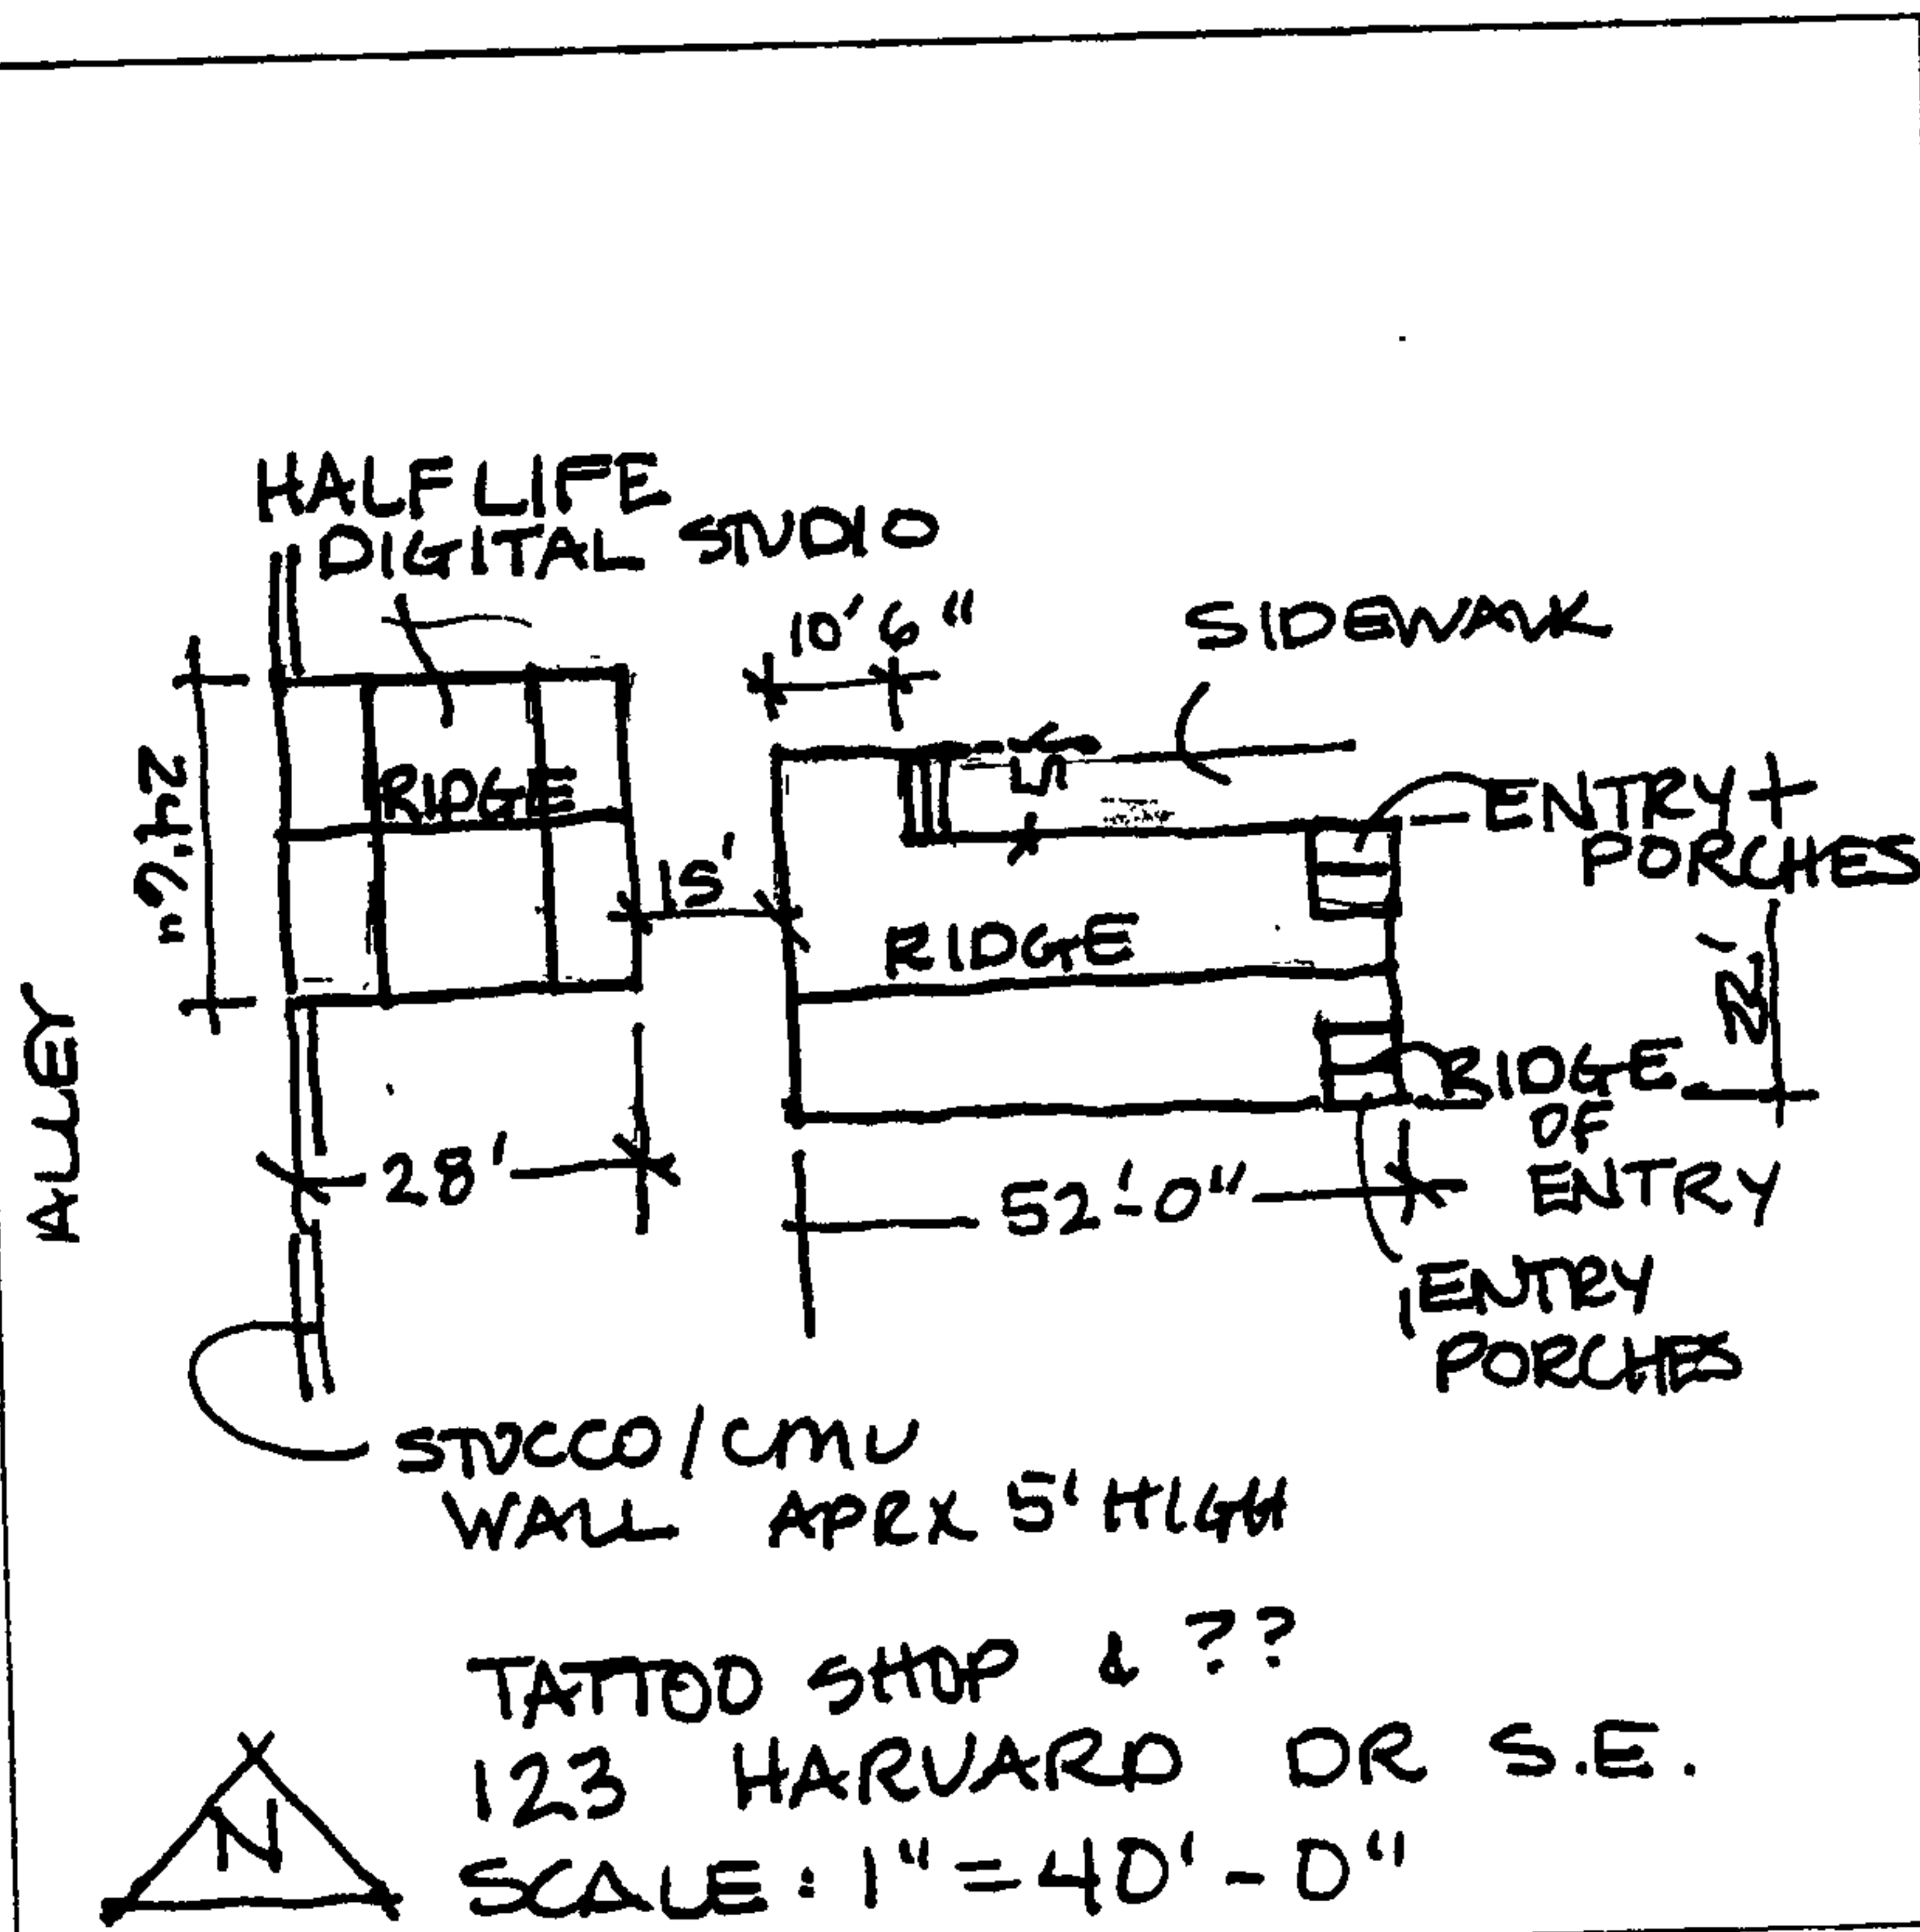 HALF LIFE
DIGITAL STUDIO
10'6"
SIDEWALK
5'
RIDGE
ENTRY +
PORCHES
15'
RIDGE
ALLEY
RIDGE
OF
ENTRY
28'
52'-0"
ENTRY
PORCHES
STUCCO/CMU
WALL APRX 5' HIGH
TATTOO SHOP & ??
123 HARVARD DR S.E.
N
SCALE: 1"=40'-0"